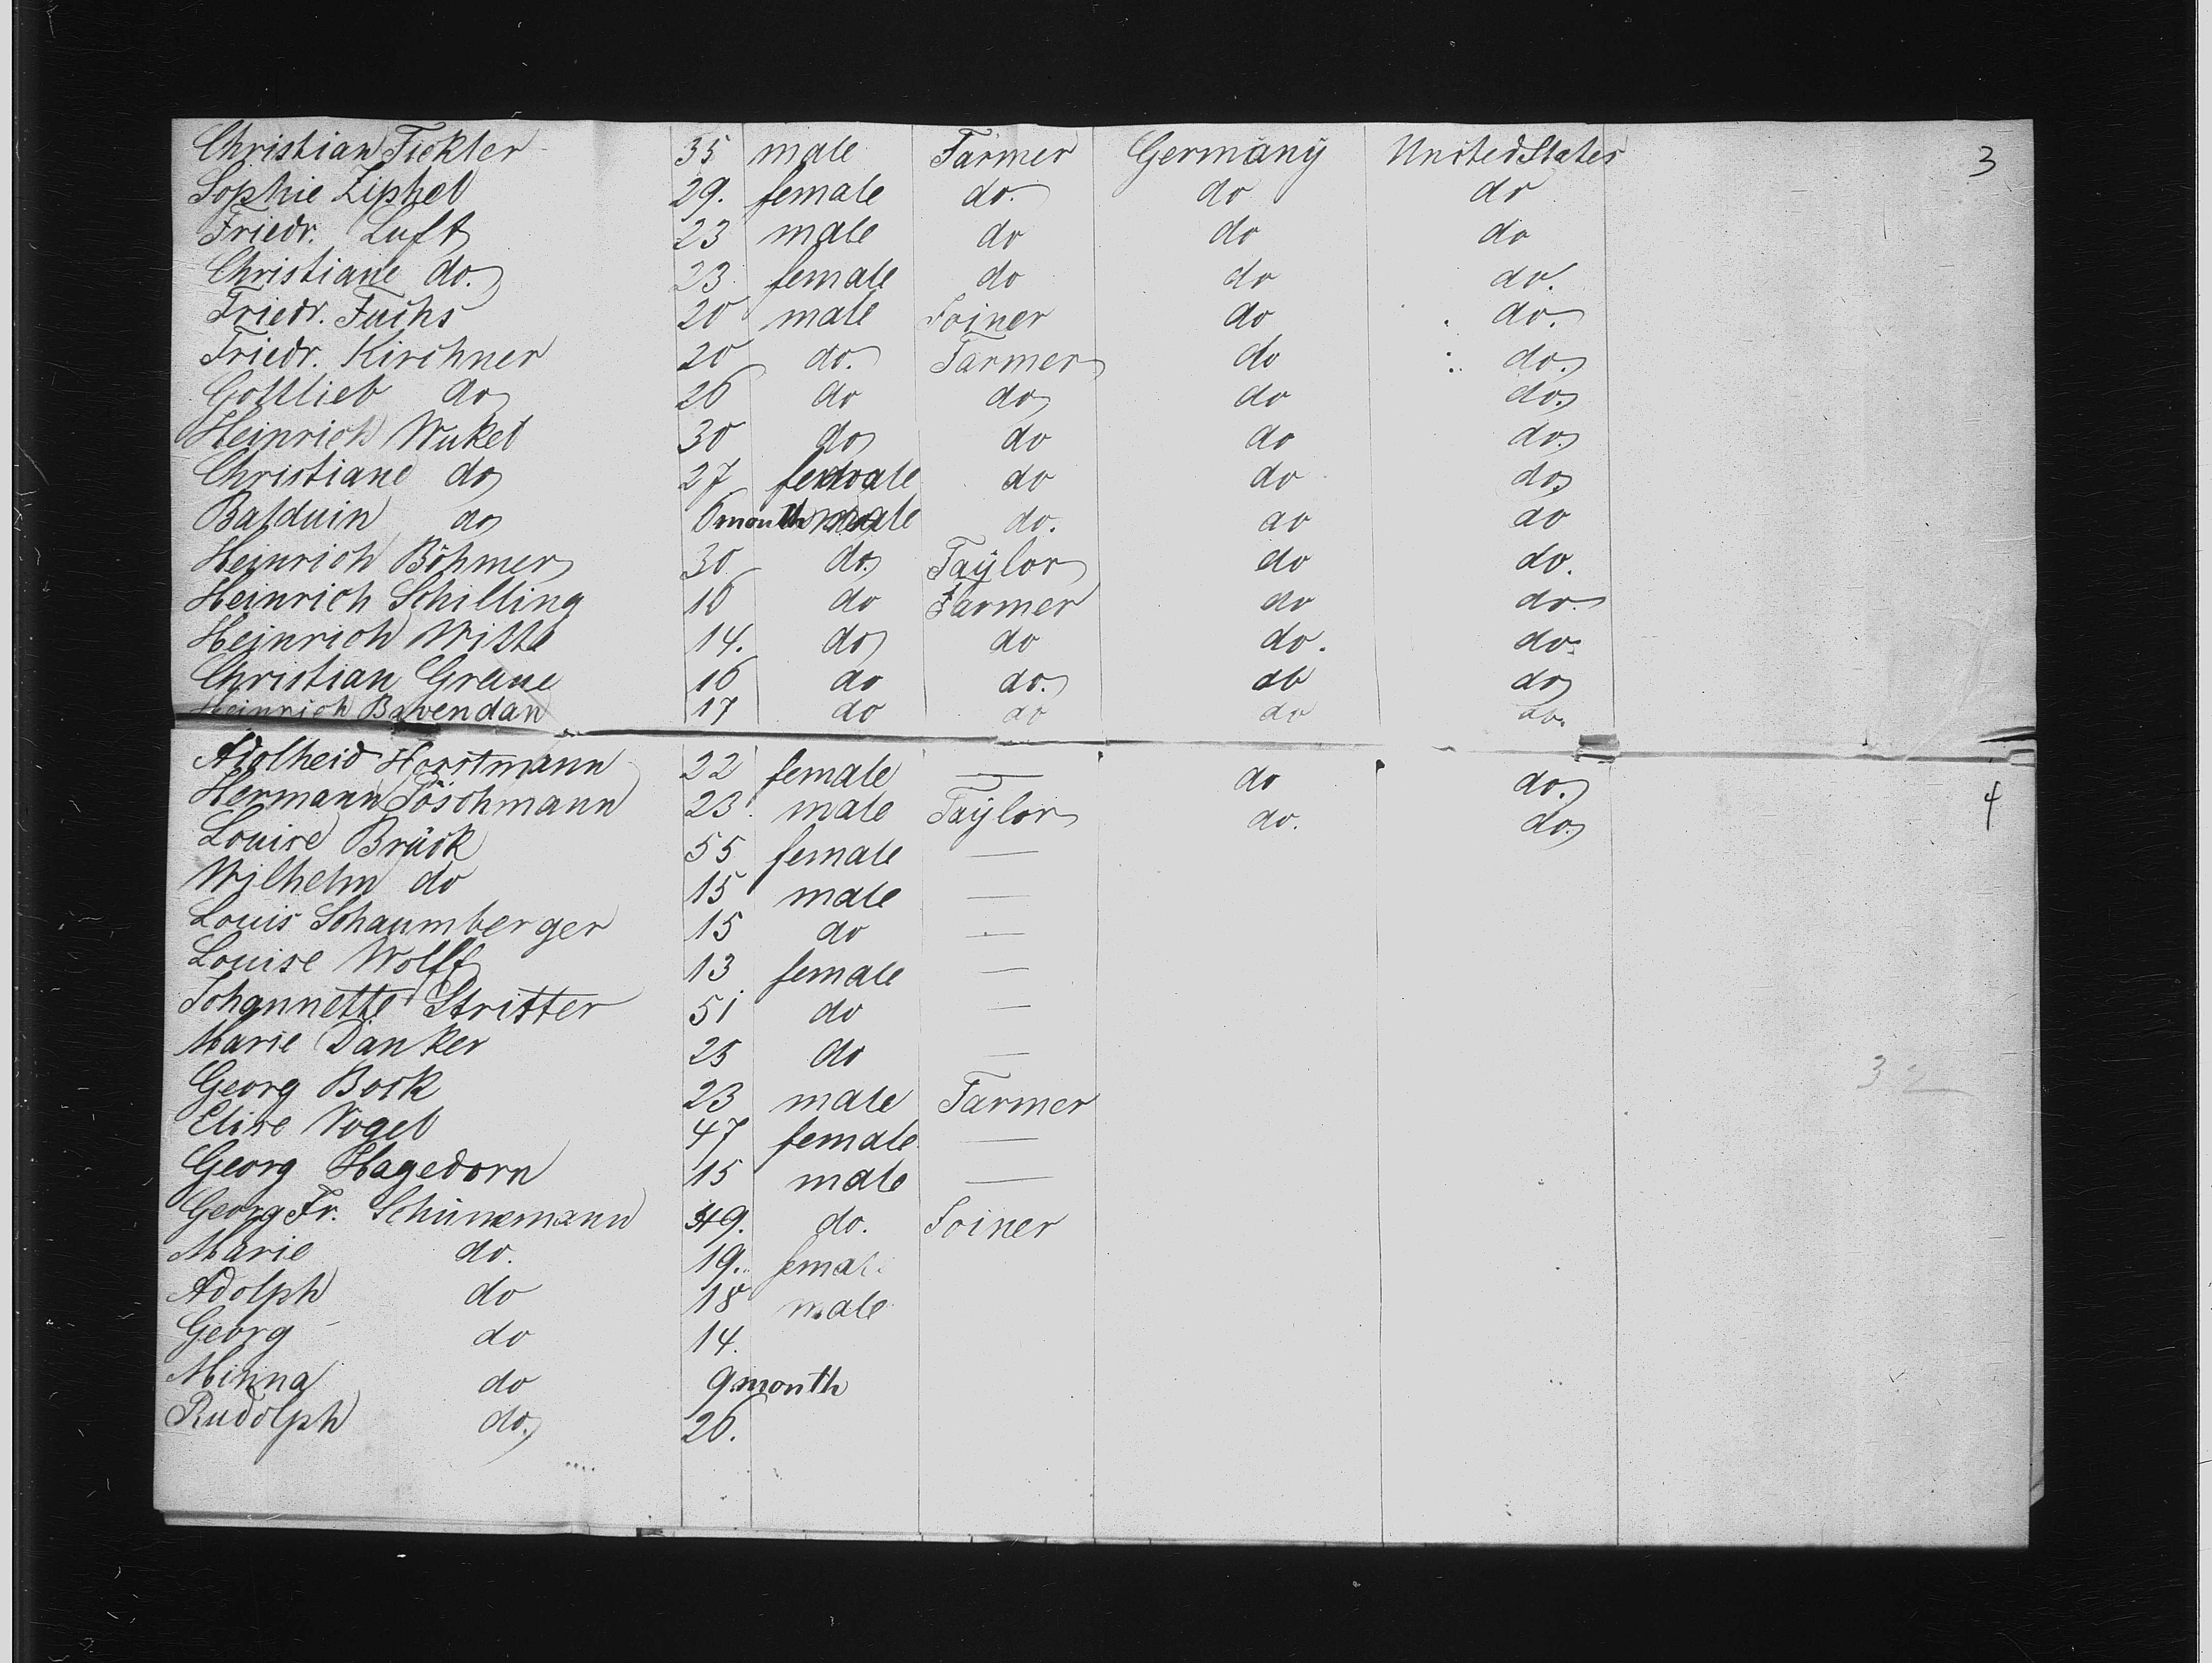 Christian Fickler 35 male Farmer Germany United States 3
Sophie Ziphel 29. female do. do do
Friedr. Luft 23 male do do do
Christiane do. 23 female do do do.
Friedr. Fuchs 20 male Joiner do do.
Friedr. Kirchner 20 do. Farmer do do.
Gottlieb do 26 do do do do.
Heinrich Wukel 30 do do do do.
Christiane do 27 female do do do.
Balduin do 6 month male do. do do
Heinrich Böhmer 30 do. Taylor do do.
Heinrich Schilling 16 do Farmer do do.
Heinrich Witte 14. do do do. do.
Christian Greune 16 do do. do do
Heinrich Bavendan 17 do do do do.
Adolheid Horstmann 22 female — do do.
Hermann Pöschmann 23. male Taylor do. do. 4
Louise Brück 55 female —
Wilhelm do 15 male —
Louis Schaumberger 15 do —
Louise Wolff 13 female —
Johannette Stritter 51 do —
Marie Danker 25 do —
Georg Bock 23 male Farmer 32
Elise Vogel 47 female —
Georg Hagedorn 15 male —
Georg Fr. Schünemann 49. do. Joiner
Marie do. 19. female
Adolph do 18 male
Georg do 14.
Minna do 9 month
Rudolph do. 26.